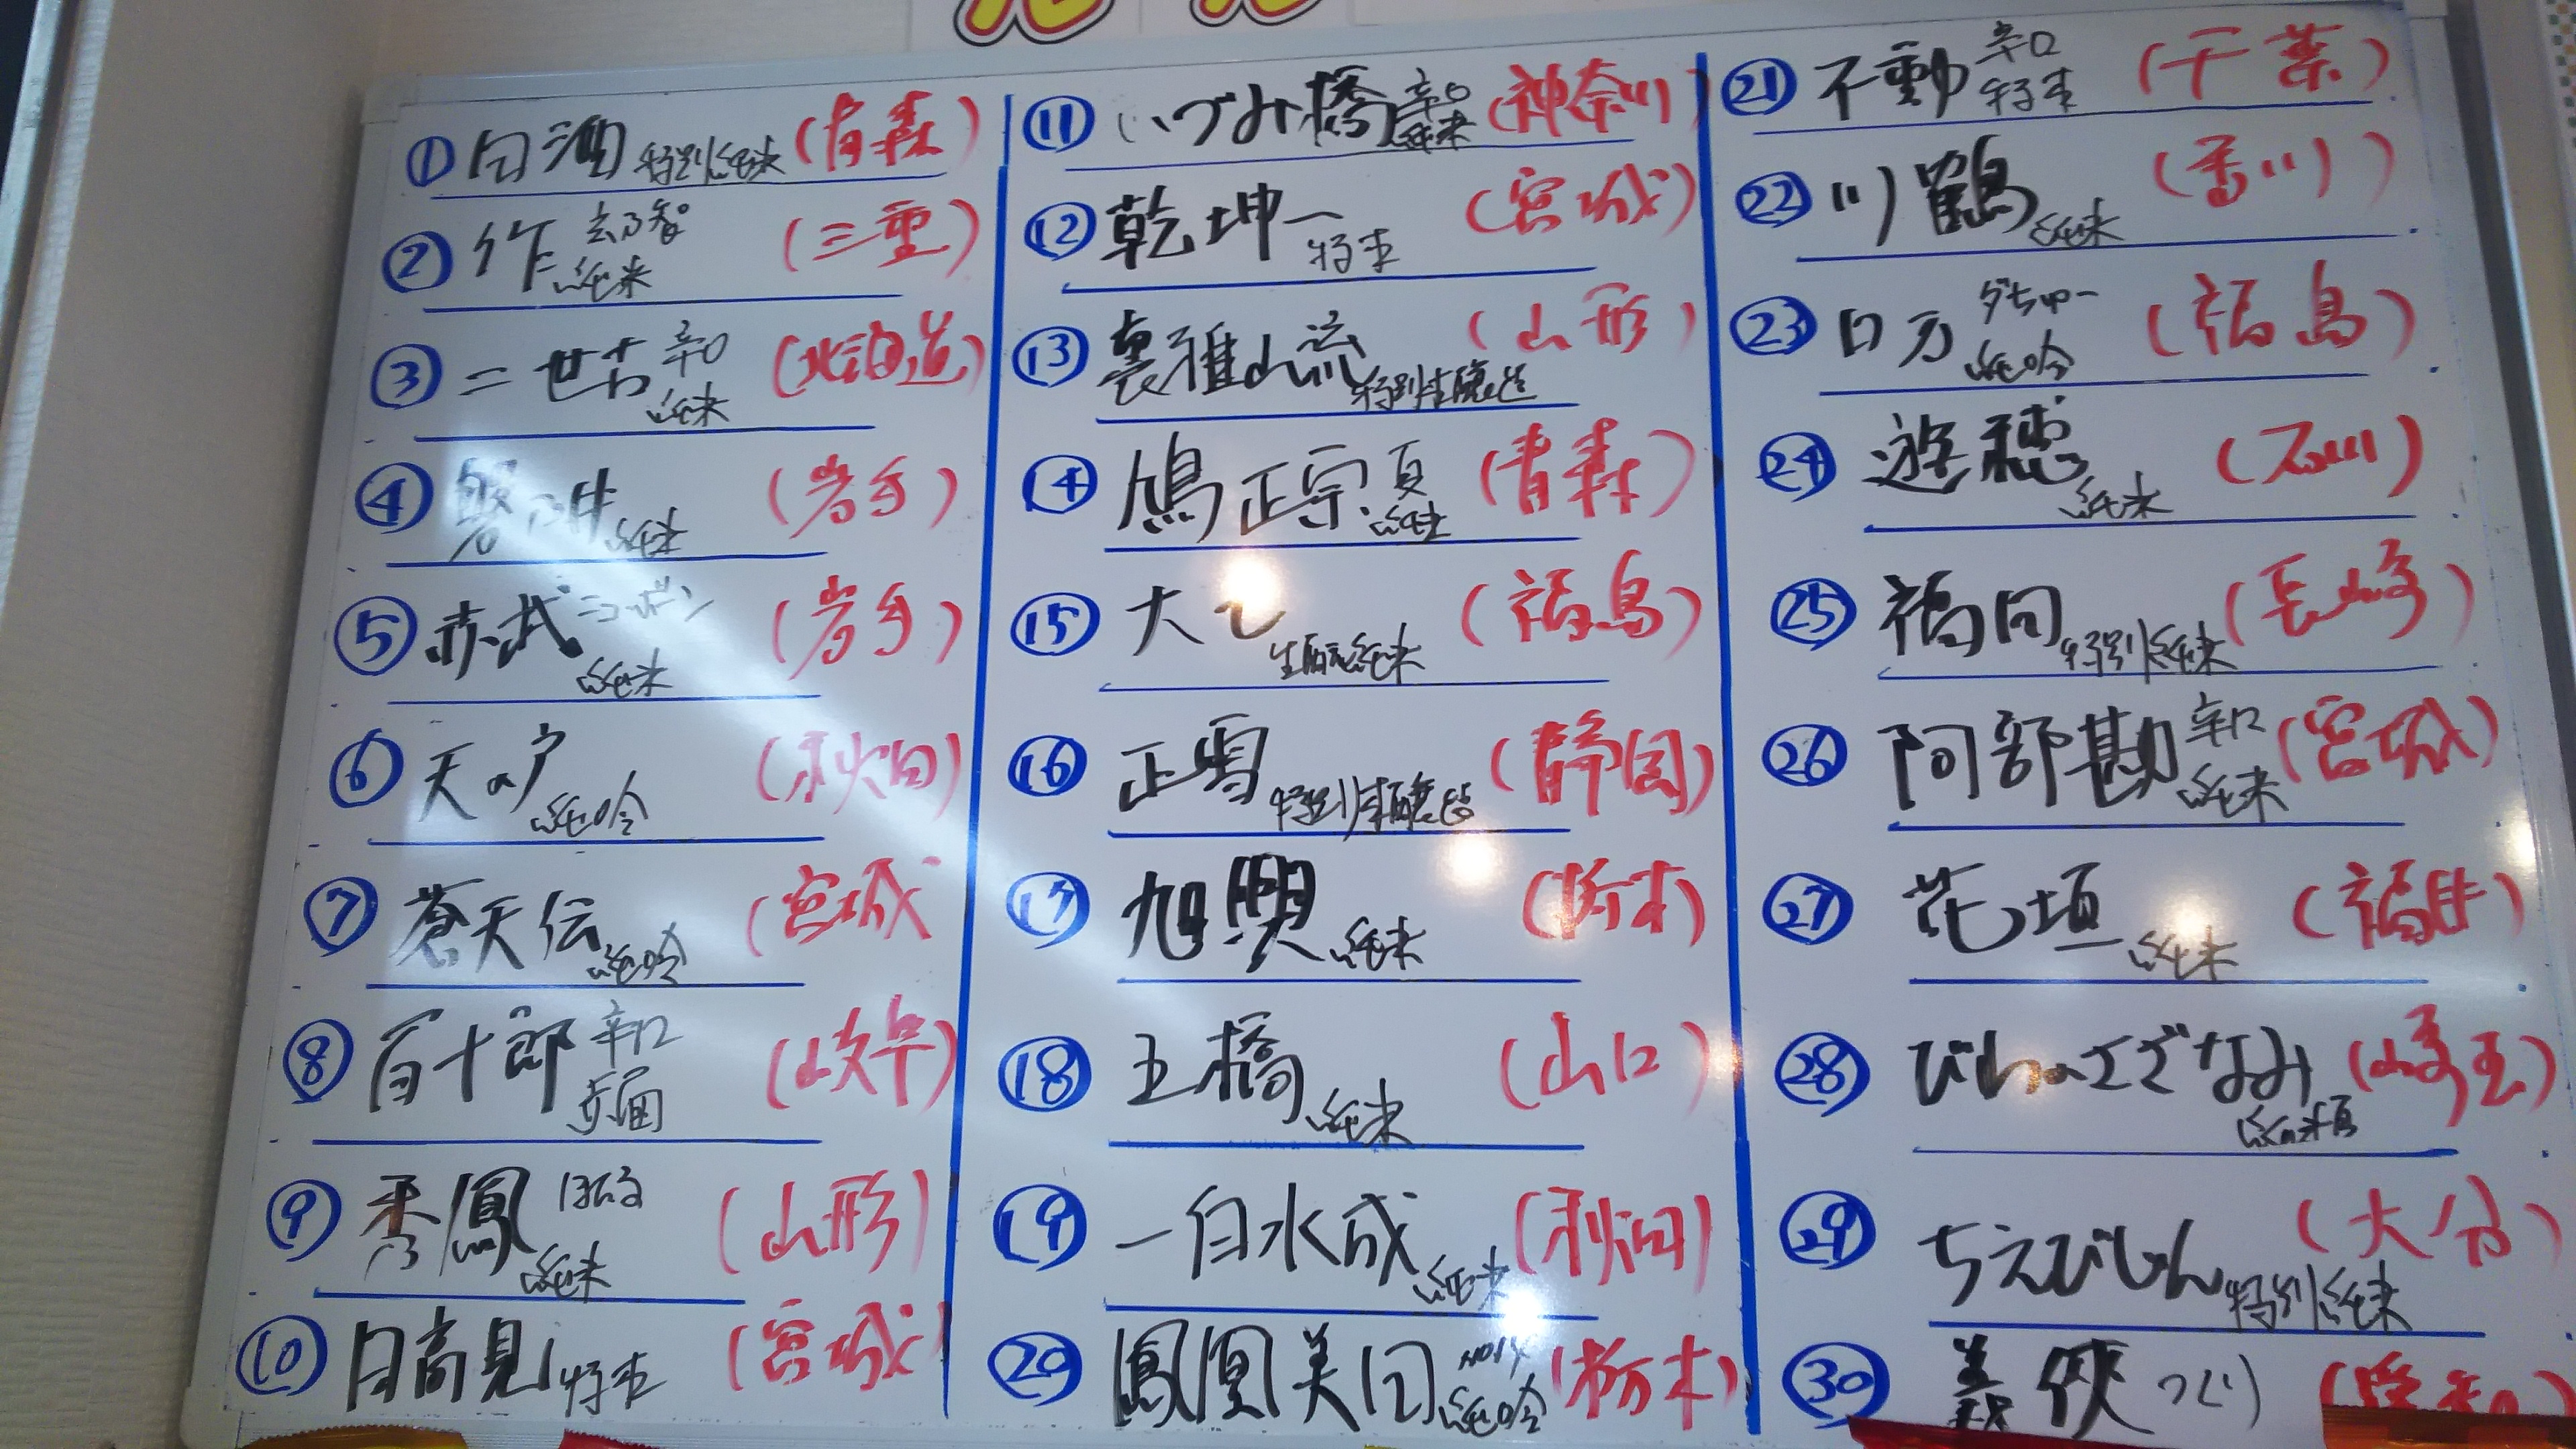 ① 田酒 特別純米 (青森)
② 作 玄乃智 純米 (三重)
③ 二世古 辛口 純米 (北海道)
④ 磐乃井 純米 (岩手)
⑤ 赤武 純米 (岩手)
⑥ 天の戸 純吟 (秋田)
⑦ 蒼天伝 純吟 (宮城
⑧ 百十郎 辛口 赤面 (岐阜)
⑨ 秀鳳 純米 (山形)
⑩ 日高見 特本 (宮城)
⑪ いづみ橋 辛口 純米 (神奈川)
⑫ 乾坤一 特本 (宮城)
⑬ 裏雅山流 特別本醸造 (山形)
⑭ 鳩正宗 夏 (青森)
⑮ 大七 生酛純米 (福島)
⑯ 正雪 特別本醸造 (静岡)
⑰ 旭興 純米 (栃木)
⑱ 五橋 純米 (山口)
⑲ 一白水成 純米 (秋田)
⑳ 鳳凰美田 NO14 純吟 (栃木)
㉑ 不動 辛口 特本 (千葉)
㉒ 川鶴 純米 (香川)
㉓ ロ万 純吟 (福島)
㉔ 遊穂 純米 (石川)
㉕ 福田 特別純米 (長崎)
㉖ 阿部勘 辛口 純米 (宮城)
㉗ 花垣 純米 (福井)
㉘ びわのさざなみ (埼玉)
㉙ ちえびじん 特別純米 (大分)
㉚ 義侠 (愛知)